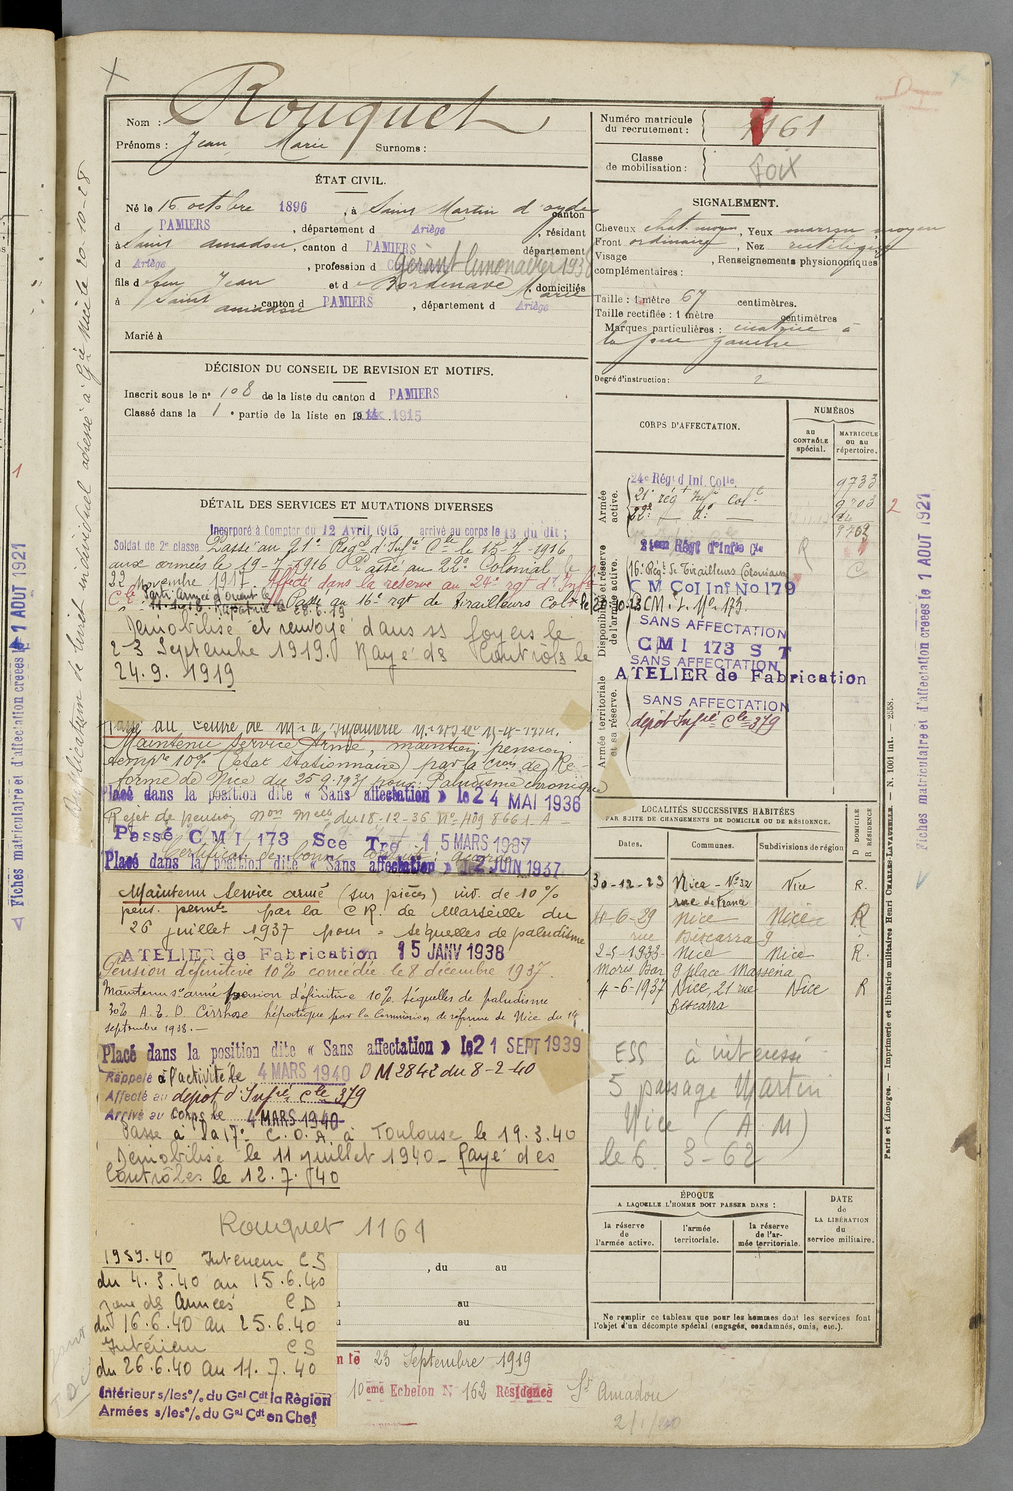 Nom : Rouquet
Prénoms : Jean Marie Surnoms :
ÉTAT CIVIL.
Né le 16 octobre 1896, à Saint Martin d'oydes canton
d PAMIERS, département d Ariège, résidant
à Saint amadou, canton d PAMIERS département
d Ariège, profession d gérant limonadier 1936
fils d feu Jean et d e Bordenave Marie, domiciliés
à Saint amadou canton d PAMIERS, département d Ariège
Marié à
DÉCISION DU CONSEIL DE REVISION ET MOTIFS.
Inscrit sous le n° 108 de la liste du canton d PAMIERS
Classé dans la 1e partie de la liste en 1915
DÉTAIL DES SERVICES ET MUTATIONS DIVERSES
Incorporé à Compter du 12 Avril 1915 arrivé au corps le 13 du dit ;
Soldat de 2e classe Passé au 21e Regt d'Infie Cle le 15-7-1916
aux armées le 19-7-1916 Passé au 22e Colonial le
22 Novembre 1917. Affecté dans la réserve au 24e rgt d'Infie
Cle Parti Armée d'orient le
11.1.918. Rapatrié le 28.6.19 Passé au 16e rgt de tirailleurs Colx le 20-10-23
Démobilisé et renvoyé dans ss foyers le
23 Septembre 1919. Rayé ds Contrôls le
24.9.1919
Passé au Centre de Mob d'Infanterie
Maintenu Service Armé, maintien pension
tempre 10% (état stationnaire) par la Cion de Ré-
forme de Nice du 25.9.1931 pour Paludisme chronique
Placé dans la position dite « Sans affectation » le 24 MAI 1936
Rejet de pension Non Mlle du 18-12-36 N° H09 8661. A -
Passé CMI 173 Sce Tre 15 MARS 1937
Placé dans la position dite « Sans affectation » le 2 JUIN 1937
Maintenu Service armé (sur pièces) inv. de 10%
pens. permte par la C.R. de Marseille du
26 juillet 1937 pour : séquelles de paludisme
ATELIER de Fabrication 15 JANV 1938
Pension définitive 10% concédée le 8 décembre 1937.
Maintenu sce armé pension définitive 10% séquelles de paludisme
30% A.E.D. Cirrhose hépatique par la Commission de réforme de Nice du 14
septembre 1938.-
Placé dans la position dite « Sans affectation » le 21 SEPT 1939
Rappelé à l'activité le 4 MARS 1940 DM 2842 du 8-2-40
Affecté au dépot d'Infie Cle 379
Arrivé au corps le 4 MARS 1940
Passé à la 17e C.O.A. à Toulouse le 19.3.40
Démobilisé le 11 juillet 1940 - Rayé des
Contrôles le 12.7.40
Rouquet 1161
1939.40 Intérieur CS
du 4.3.40 au 15.6.40
zone des Armées CD
du 16.6.40 au 25.6.40
Intérieur CS
du 26.6.40 au 11.7.40
Intérieur s/les % du Gal Cdt la Région
Armées s/les % du Gal Cdt en Chef
, du au
au
au
23 Septembre 1919
10eme Echelon N 162 Résidence St Amadou
2/1/20
Numéro matricule du recrutement : 1161
Classe de mobilisation : Foix
SIGNALEMENT.
Cheveux chat. moyen, Yeux marron moyen
Front ordinaire, Nez rectiligne
Visage, Renseignements physionomiques
complémentaires :
Taille : 1 mètre 67 centimètres.
Taille rectifiée : 1 mètre centimètres
Marques particulières : cicatrice à
la joue gauche
Degré d'instruction : 2
CORPS D'AFFECTATION.
NUMÉROS
au CONTRÔLE spécial.
MATRICULE ou au répertoire.
Armée active.
24e Régt d Inf. Colle. 9733
21e régt Infie Cole 9703
22e — do —
Disponibilité et réserve de l'armée active.
24eme Régt d'Infie Cle
16e Régt de Tirailleurs Coloniaux
C M Col Inf No 179
C.M.I. N° 173.
SANS AFFECTATION
CMI 173 S T
SANS AFFECTATION
ATELIER de Fabrication
Armée territoriale et sa réserve.
SANS AFFECTATION
dépôt Infie Cle 379
LOCALITÉS SUCCESSIVES HABITÉES
PAR SUITE DE CHANGEMENTS DE DOMICILE OU DE RÉSIDENCE.
Dates. Communes. Subdivisions de région D DOMICILE R RÉSIDENCE
30-12-23 Nice - N° 32 rue de France Nice R.
11-6-29 Nice rue Biscarra 9 Nice R
2-5-1933 Nice Nice R.
Moret Bar 9 place Masséna
4-6-1937 Nice, 21 rue Biscarra Nice R
ESS à intéressé
5 passage Martin
Nice (A M)
le 6. 3-62
ÉPOQUE
A LAQUELLE L'HOMME DOIT PASSER DANS :
DATE de LA LIBÉRATION du service militaire.
la réserve de l'armée active.
l'armée territoriale.
la réserve de l'armée territoriale.
Ne remplir ce tableau que pour les hommes dont les services font
l'objet d'un décompte spécial (engagés, condamnés, omis, etc.).
Paris et Limoges. — Imprimerie et librairie militaires Henri CHARLES-LAVAUZELLE. — N. 1001 int. — 2558.
Fiches matriculaire et d'affectation creees le 1 AOUT 1921
Fiches matriculaire et d'affectation creees le 1 AOUT 1921
Duplicatum de livret individuel adressé à Gie Nice le 20-10-28